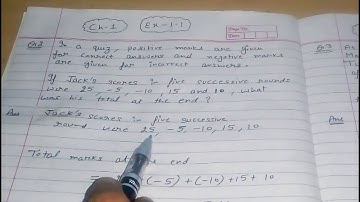 Ch-1 Ex-1.1
Page No.
Date
Q3 In a quiz, positive marks are given
for correct answers and negative marks
are given for incorrect answers.
If Jack's scores in five successive rounds
were 25, -5, -10, 15 and 10, what
was his total at the end ?
Ans Jack's scores in five successive
round were 25, -5, -10, 15, 10
Total marks at the end
= + (-5) + (-10) + 15 + 10
Q3
Ans